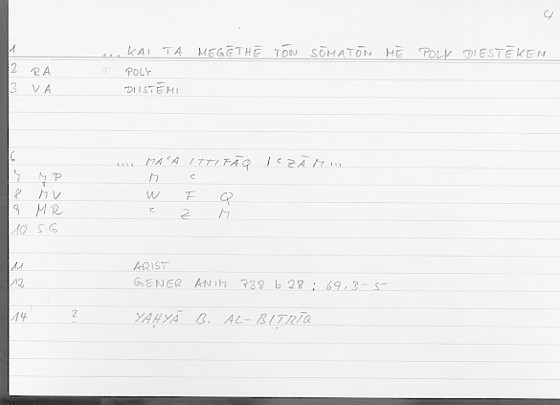 4
1 ... KAI TA MEGETHĒ TŌN SŌMATŌN MĒ POLY DIESTĒKEN
2 RA POLY
3 VA DIISTĒMI
6 .... MAʿA ITTIFĀQ IʿẒĀM ...
7 MP M ʿ
8 MV W F Q
9 MR ʿ Ẓ M
10 SG
11 ARIST
12 GENER ANIM 738 b 28 ; 69.3-5
14 ? YAḤYĀ B. AL-BIṬRĪQ